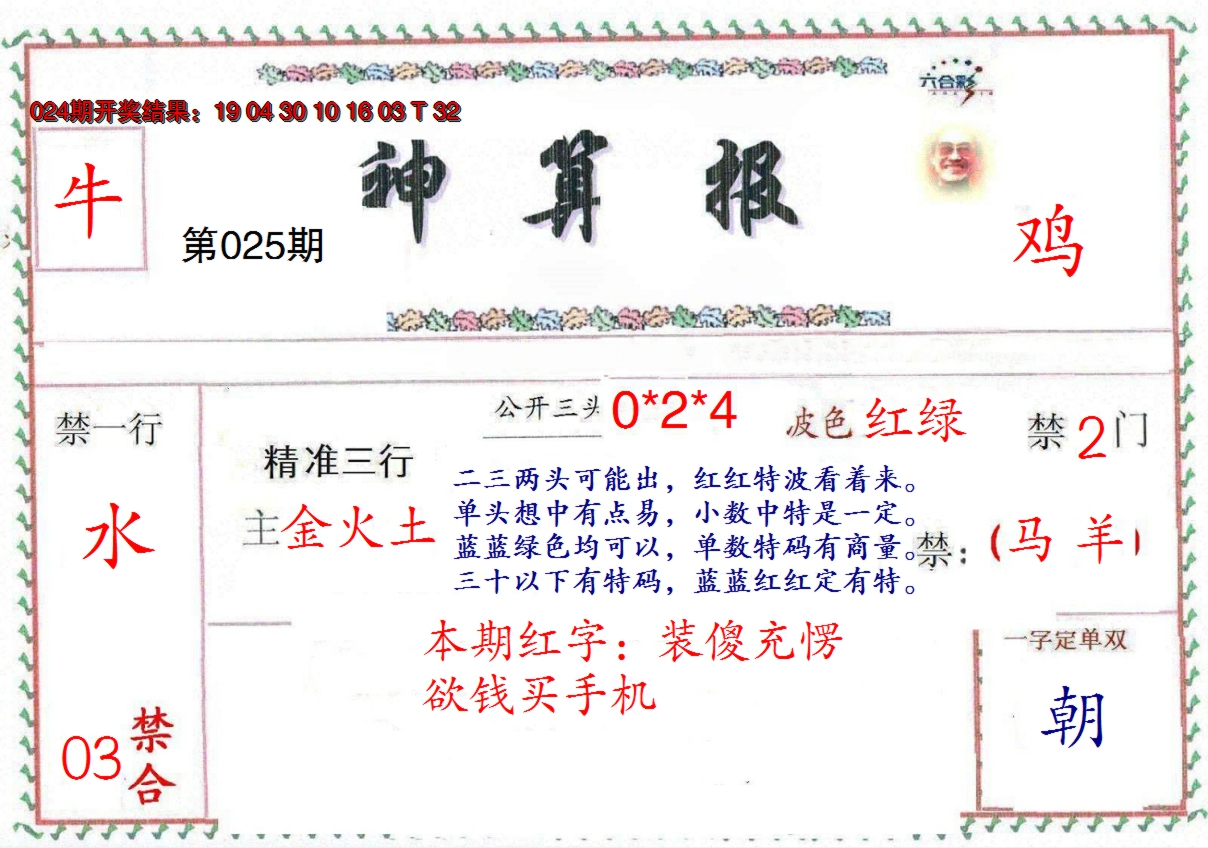 六合彩
024期开奖结果：19 04 30 10 16 03 T 32
神算报
牛
第025期
鸡
公开三头 0*2*4
波色 红绿
禁一行
禁2门
精准三行
主金火土
水
二三两头可能出，红红特波看着来。
单头想中有点易，小数中特是一定。
蓝蓝绿色均可以，单数特码有商量。
三十以下有特码，蓝蓝红红定有特。
禁：（马 羊）
本期红字：装傻充愣
欲钱买手机
一字定单双
朝
03禁合